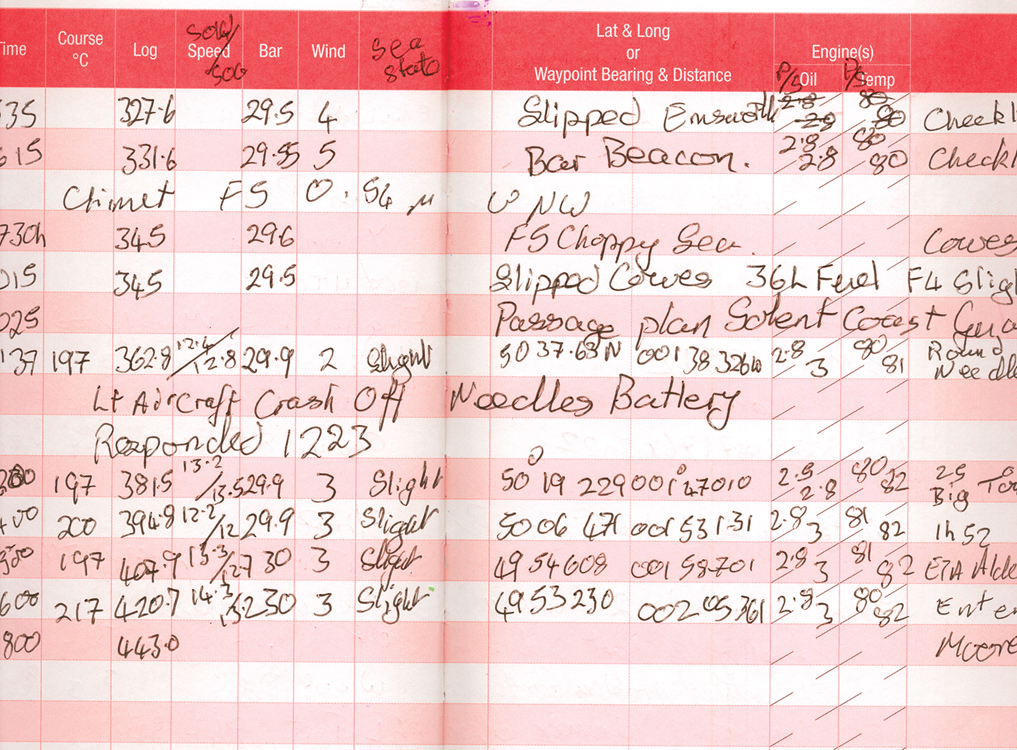 Time Course °C Log Speed SOW/SOG Bar Wind Sea State Lat & Long or Waypoint Bearing & Distance Engine(s) P/S Oil P/S Temp
35 327.6 29.5 4 Slipped Emsworth 2.8 29 80 80 Checkl
615 331.6 29.55 5 Bar Beacon. 2.8 2.8 80 80 Check
Chimet F5 0.54 M NW
730h 345 29.6 F5 Choppy Sea. Cowes
015 345 29.5 Slipped Cowes 36L Fuel F4 Sligh
025 Passage plan Solent Coast Gua
137 197 362.8 12.4/12.8 29.9 2 Slight 50 37.63N 001 38 326W 2.8 3 80 81 Round Needle
Lt Aircraft Crash Off Needles Battery
Responded 1223
300 197 381.5 13.2/13.5 29.9 3 Slight 50° 19 229 001° 47010 2.8 2.8 80 82 25 Big
400 200 394.8 12.2/12 29.9 3 Slight 50 06 471 001 53131 2.8 3 81 82 1h 52
500 197 407.9 13.3/12.7 30 3 Slight 49 54 608 001 58701 2.8 3 81 82 ETA Alde
600 217 420.7 14.3/13.2 30 3 Slight 49 53 230 002 05 361 2.8 3 80 82 Ente
800 443.0 Moore